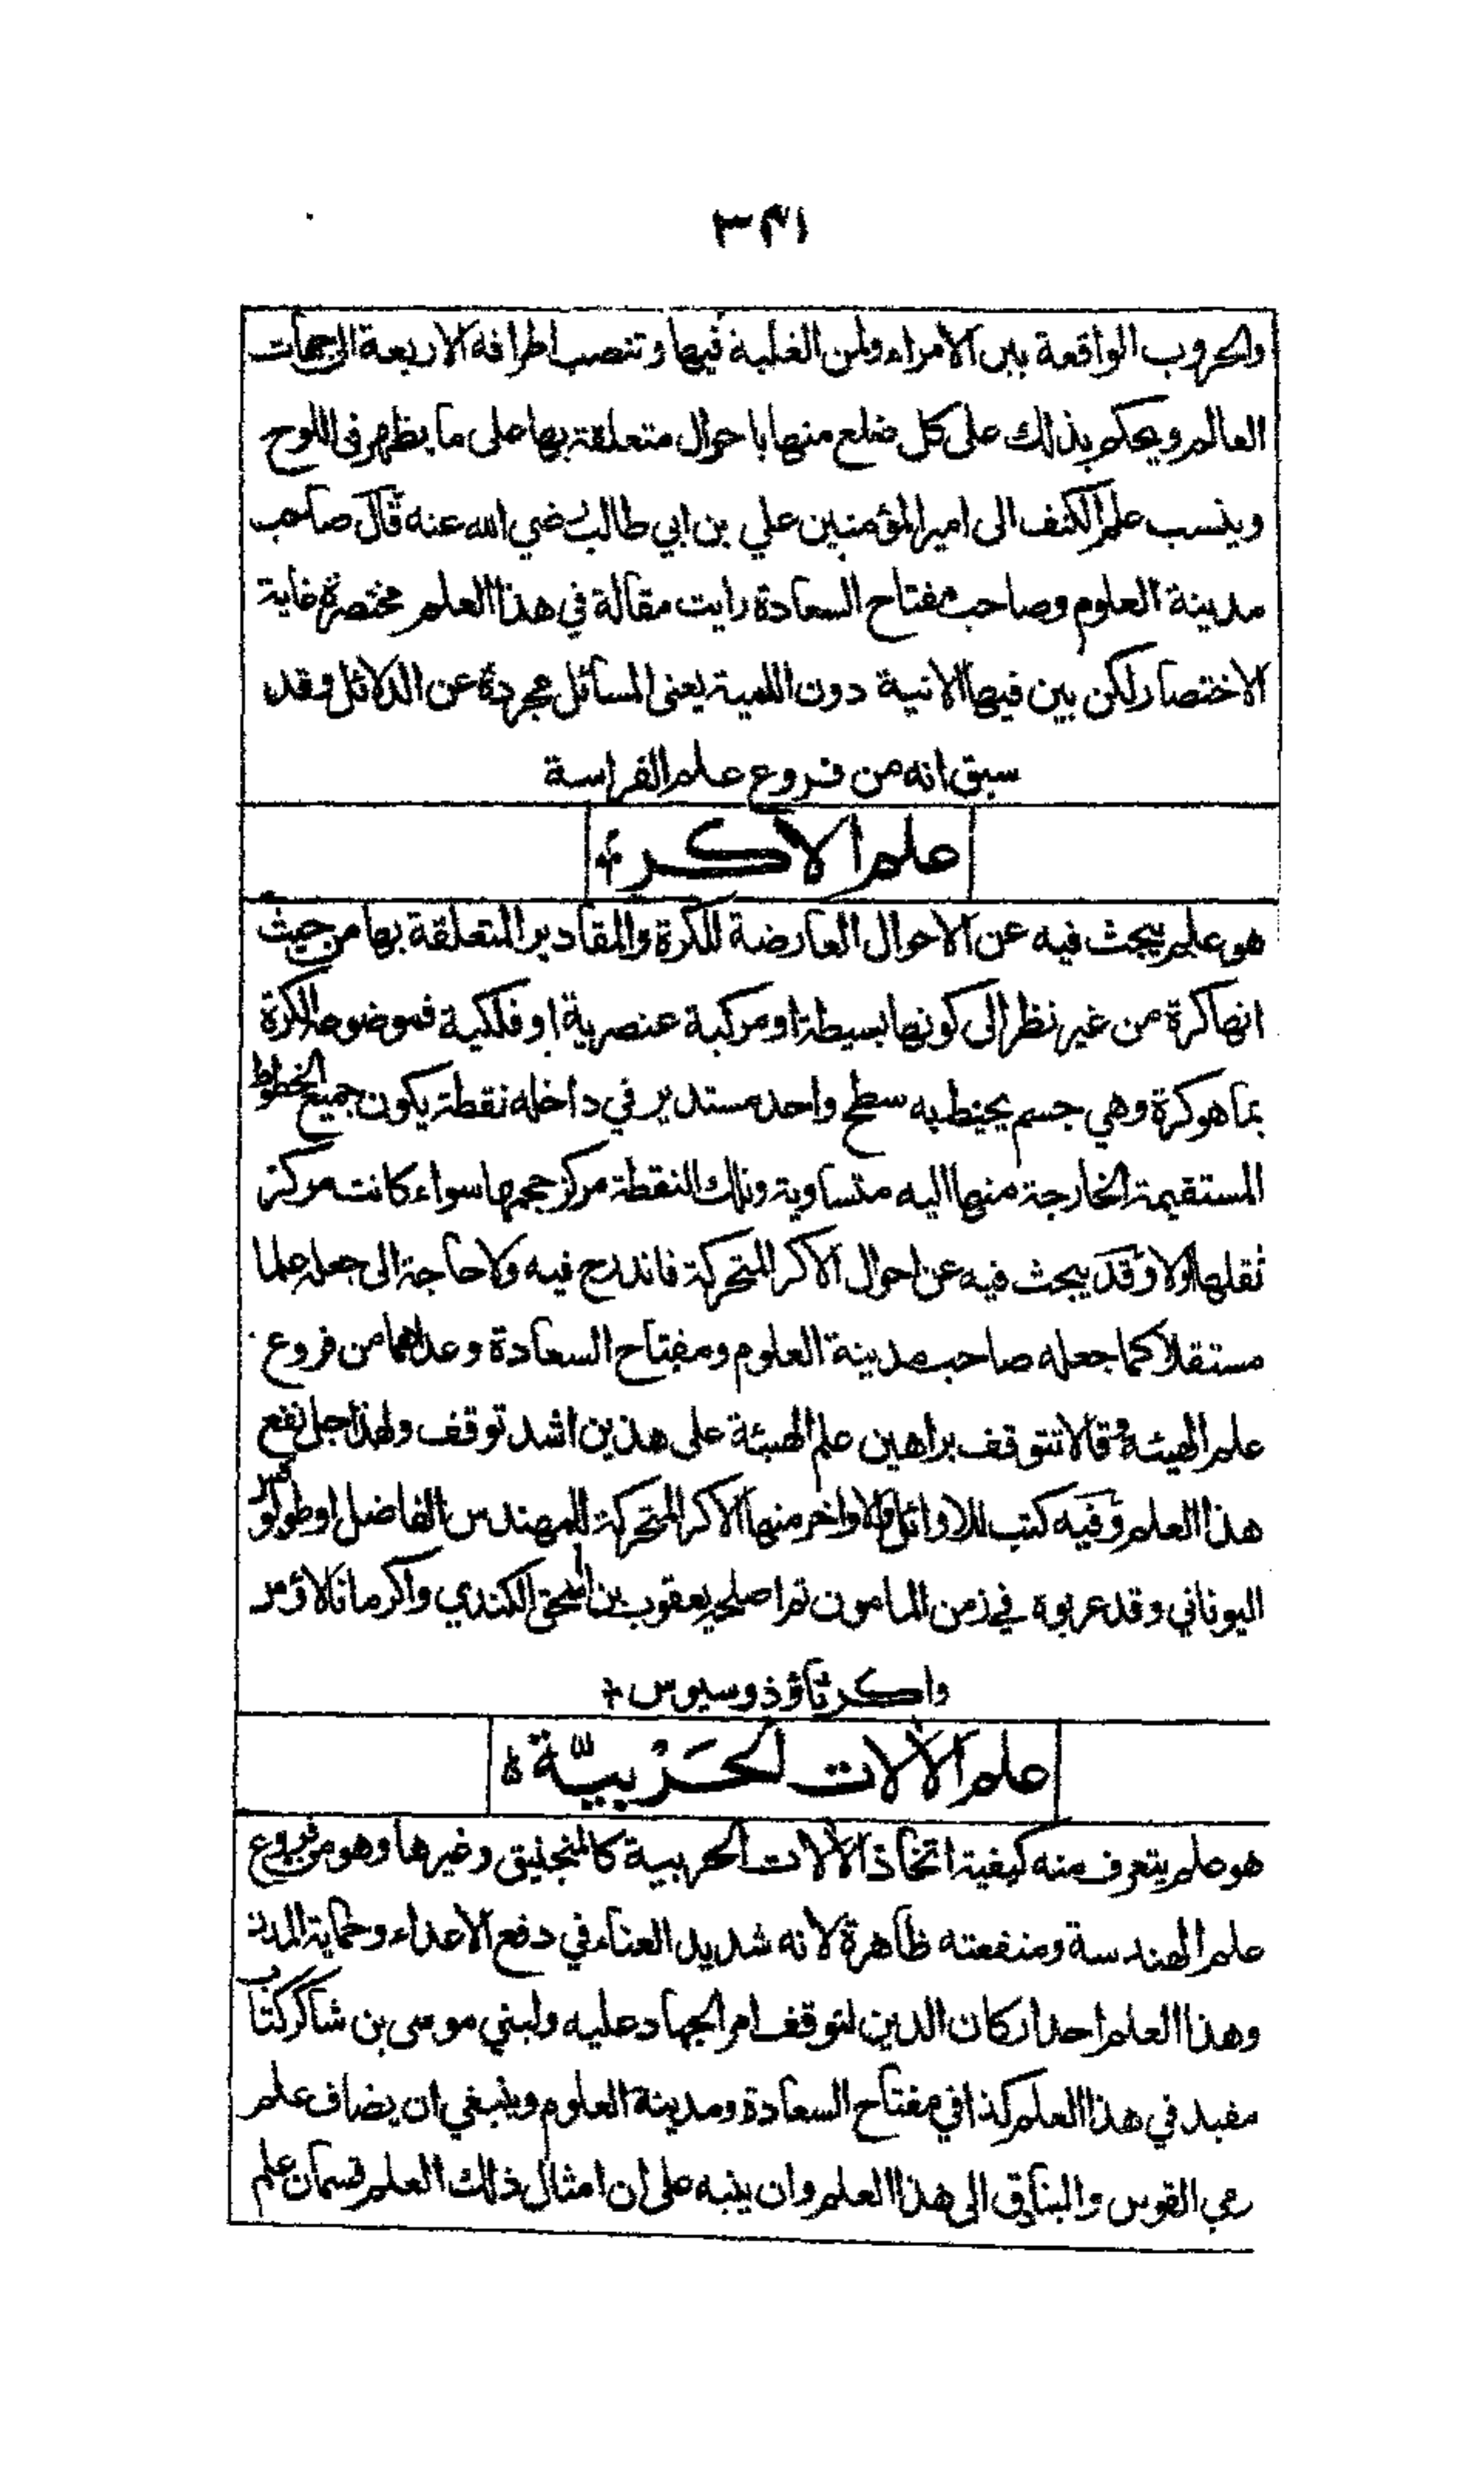 ٣٤١
والحروب الواقعة بين الامراء ولمن الغلبة فيها وتنصب اطرافه الاربعة الى جهات
العالم ويحكم بذلك على كل ضلع منها باحوال متعلقة بها على ما يظهر في اللوح
وينسب علم الكتف الى امير المؤمنين علي بن ابي طالب رضي الله عنه قال صاحب
مدينة العلوم وصاحب مفتاح السعادة رايت مقالة في هذا العلم مختصرة غاية
الاختصار لكن بين فيها الانية دون اللمية يعنى المسائل مجردة عن الدلائل وقد
سبق انه من فروع علم الفراسة
علم الاكر
هو علم يبحث فيه عن الاحوال العارضة للكرة والمقادير المتعلقة بها من حيث
انها كرة من غير نظر الى كونها بسيطة او مركبة عنصرية او فلكية فموضوعه الكرة
بما هو كرة وهي جسم يحيط به سطح واحد مستدير في داخله نقطة يكون جميع الخطوط
المستقيمة الخارجة منها اليه متساوية وتلك النقطة مركز حجمها سواء كانت مركز
ثقلها اولا وقد يبحث فيه عن احوال الاكر المتحركة فاندرج فيه ولا حاجة الى جعله علما
مستقلا كما جعله صاحب مدينة العلوم ومفتاح السعادة وعداهما من فروع
علم الهيئة وقالا تتوقف براهين علم الهيئة على هذين اشد توقف ولهذا جل نفع
هذا العلم وفيه كتب للاوائل والاواخر منها الاكر المتحركة للمهندس الفاضل اوطولوقس
اليوناني وقد عربوه في زمن المامون ثم اصلحه يعقوب بن اسحق الكندي واكر مانالاؤس
واكر ثاؤذوسيوس
علم الآلات الحَرْبيَّة
هو علم يتعرف منه كيفية اتخاذ الآلات الحربية كالمنجنيق وغيرها وهو من فروع
علم الهندسة ومنفعته ظاهرة لانه شديد العناء في دفع الاعداء وحماية المدن
وهذا العلم احد اركان الدين لتوقف امر الجهاد عليه ولبني موسى بن شاكر كتاب
مفيد في هذا العلم كذا في مفتاح السعادة ومدينة العلوم وينبغي ان يضاف علم
رمي القوس والبنادق الى هذا العلم وان ينبه على ان امثال ذلك العلم قسمان علم